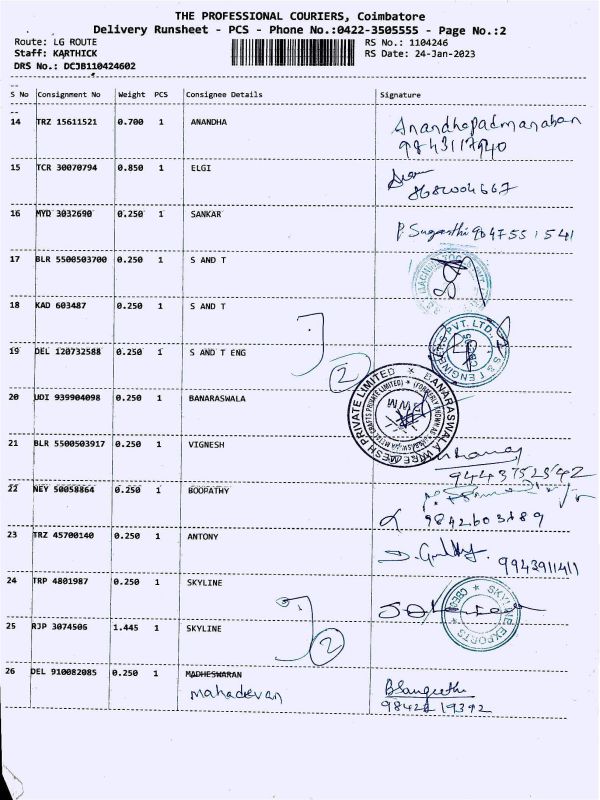 THE PROFESSIONAL COURIERS, Coimbatore
Delivery Runsheet - PCS - Phone No.:0422-3505555 - Page No.:2
Route: LG ROUTE RS No.: 1104246
Staff: KARTHICK RS Date: 24-Jan-2023
DRS No.: DCJB110424602
S No Consignment No Weight PCS Consignee Details Signature
14 TRZ 15611521 0.700 1 ANANDHA Anandhapadmanaban
9843117940
15 TCR 30070794 0.850 1 ELGI
8682004667
16 MYD 3032690 0.250 1 SANKAR P. Suganthi 9047551541
17 BLR 5500503700 0.250 1 S AND T
18 KAD 603487 0.250 1 S AND T
19 DEL 120732588 0.250 1 S AND T ENG
2
20 UDI 939904098 0.250 1 BANARASWALA
21 BLR 5500503917 0.250 1 VIGNESH
22 NEY 50058864 0.250 1 BOOPATHY
9842603889
23 TRZ 45700140 0.250 1 ANTONY 9943911411
24 TRP 4801987 0.250 1 SKYLINE
SKYLINE EXPORTS
25 RJP 3074506 1.445 1 SKYLINE
2
26 DEL 910082085 0.250 1 MADHESWARAN
mahadevan B Sangeetha